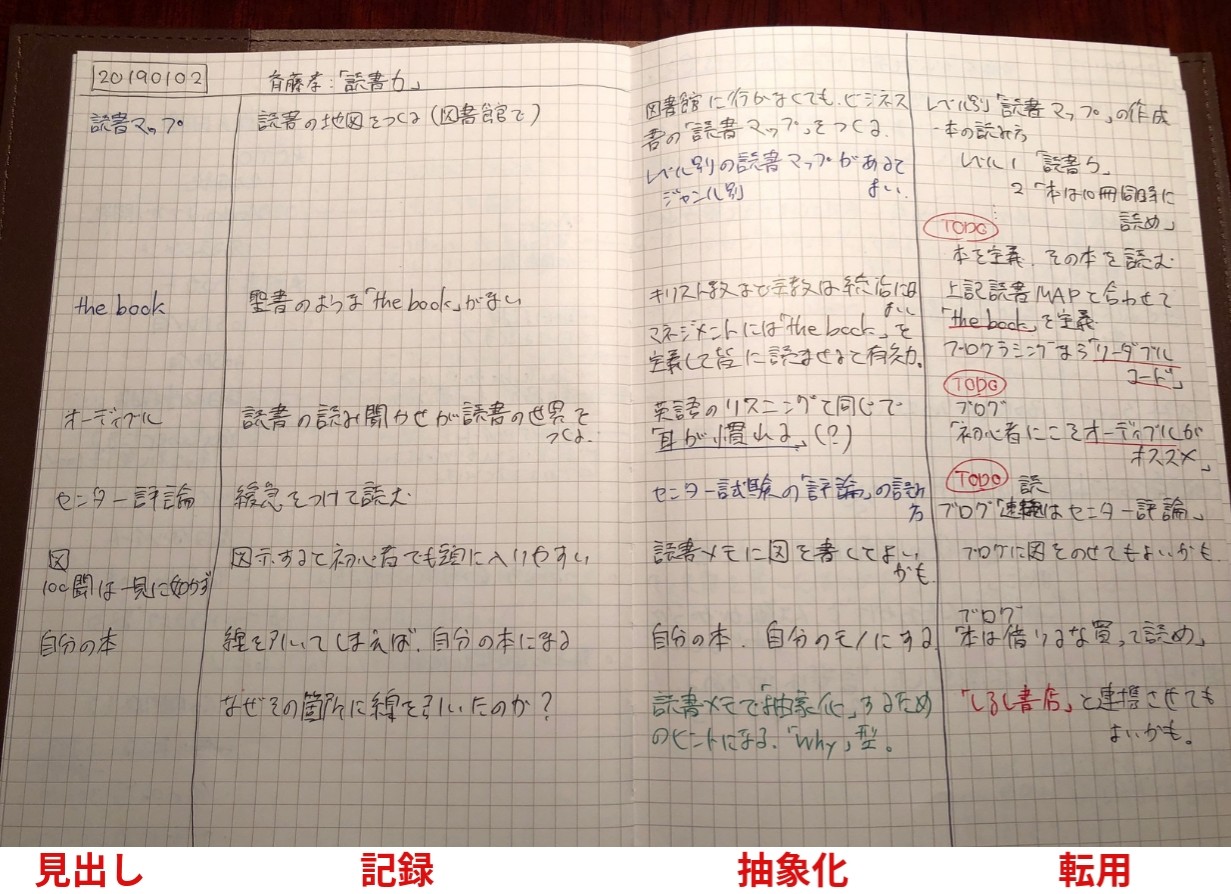 20190102
斉藤孝:「読書力」
読書マップ
読書の地図をつくる(図書館で)
図書館に行かなくても、ビジネス
書の「読書マップ」をつくる。
レベル別の読書マップがあると
ジャンル別 よい。
レベル別「読書マップ」の作成
・本の読み方
レベル1 「読書力」
2 「本は10冊同時に
読め」
TODO
本を定義、その本を読む
the book
聖書のような「the book」がない
キリスト教など宗教は統治には
よい
マネジメントには「the book」を
定義して皆に読ませると有効。
上記読書MAPと合わせて
「the book」を定義
プログラミングなら「リーダブル
コード」
オーディブル
読書の読み聞かせが読書の世界を
つくる。
英語のリスニングと同じで
「耳が慣れる」(?)
TODO
ブログ
「初心者にこそオーディブルが
オススメ」
センター評論
緩急をつけて読む
センター試験の「評論」の読み
方
TODO
読
ブログ「速はセンター評論」
図
100聞は一見に如かず
図示すると初心者でも頭に入りやすい
読書メモに図を書くとよい
かも
ブログに図をのせてもよいかも
自分の本
線を引いてしまえば、自分の本になる
自分の本、自分のモノにする
ブログ
「本は借りるな買って読め」
なぜその箇所に線を引いたのか?
読書メモで「抽象化」するため
のヒントになる。「Why」型。
「しるし書店」と連携させても
よいかも。
見出し 記録 抽象化 転用